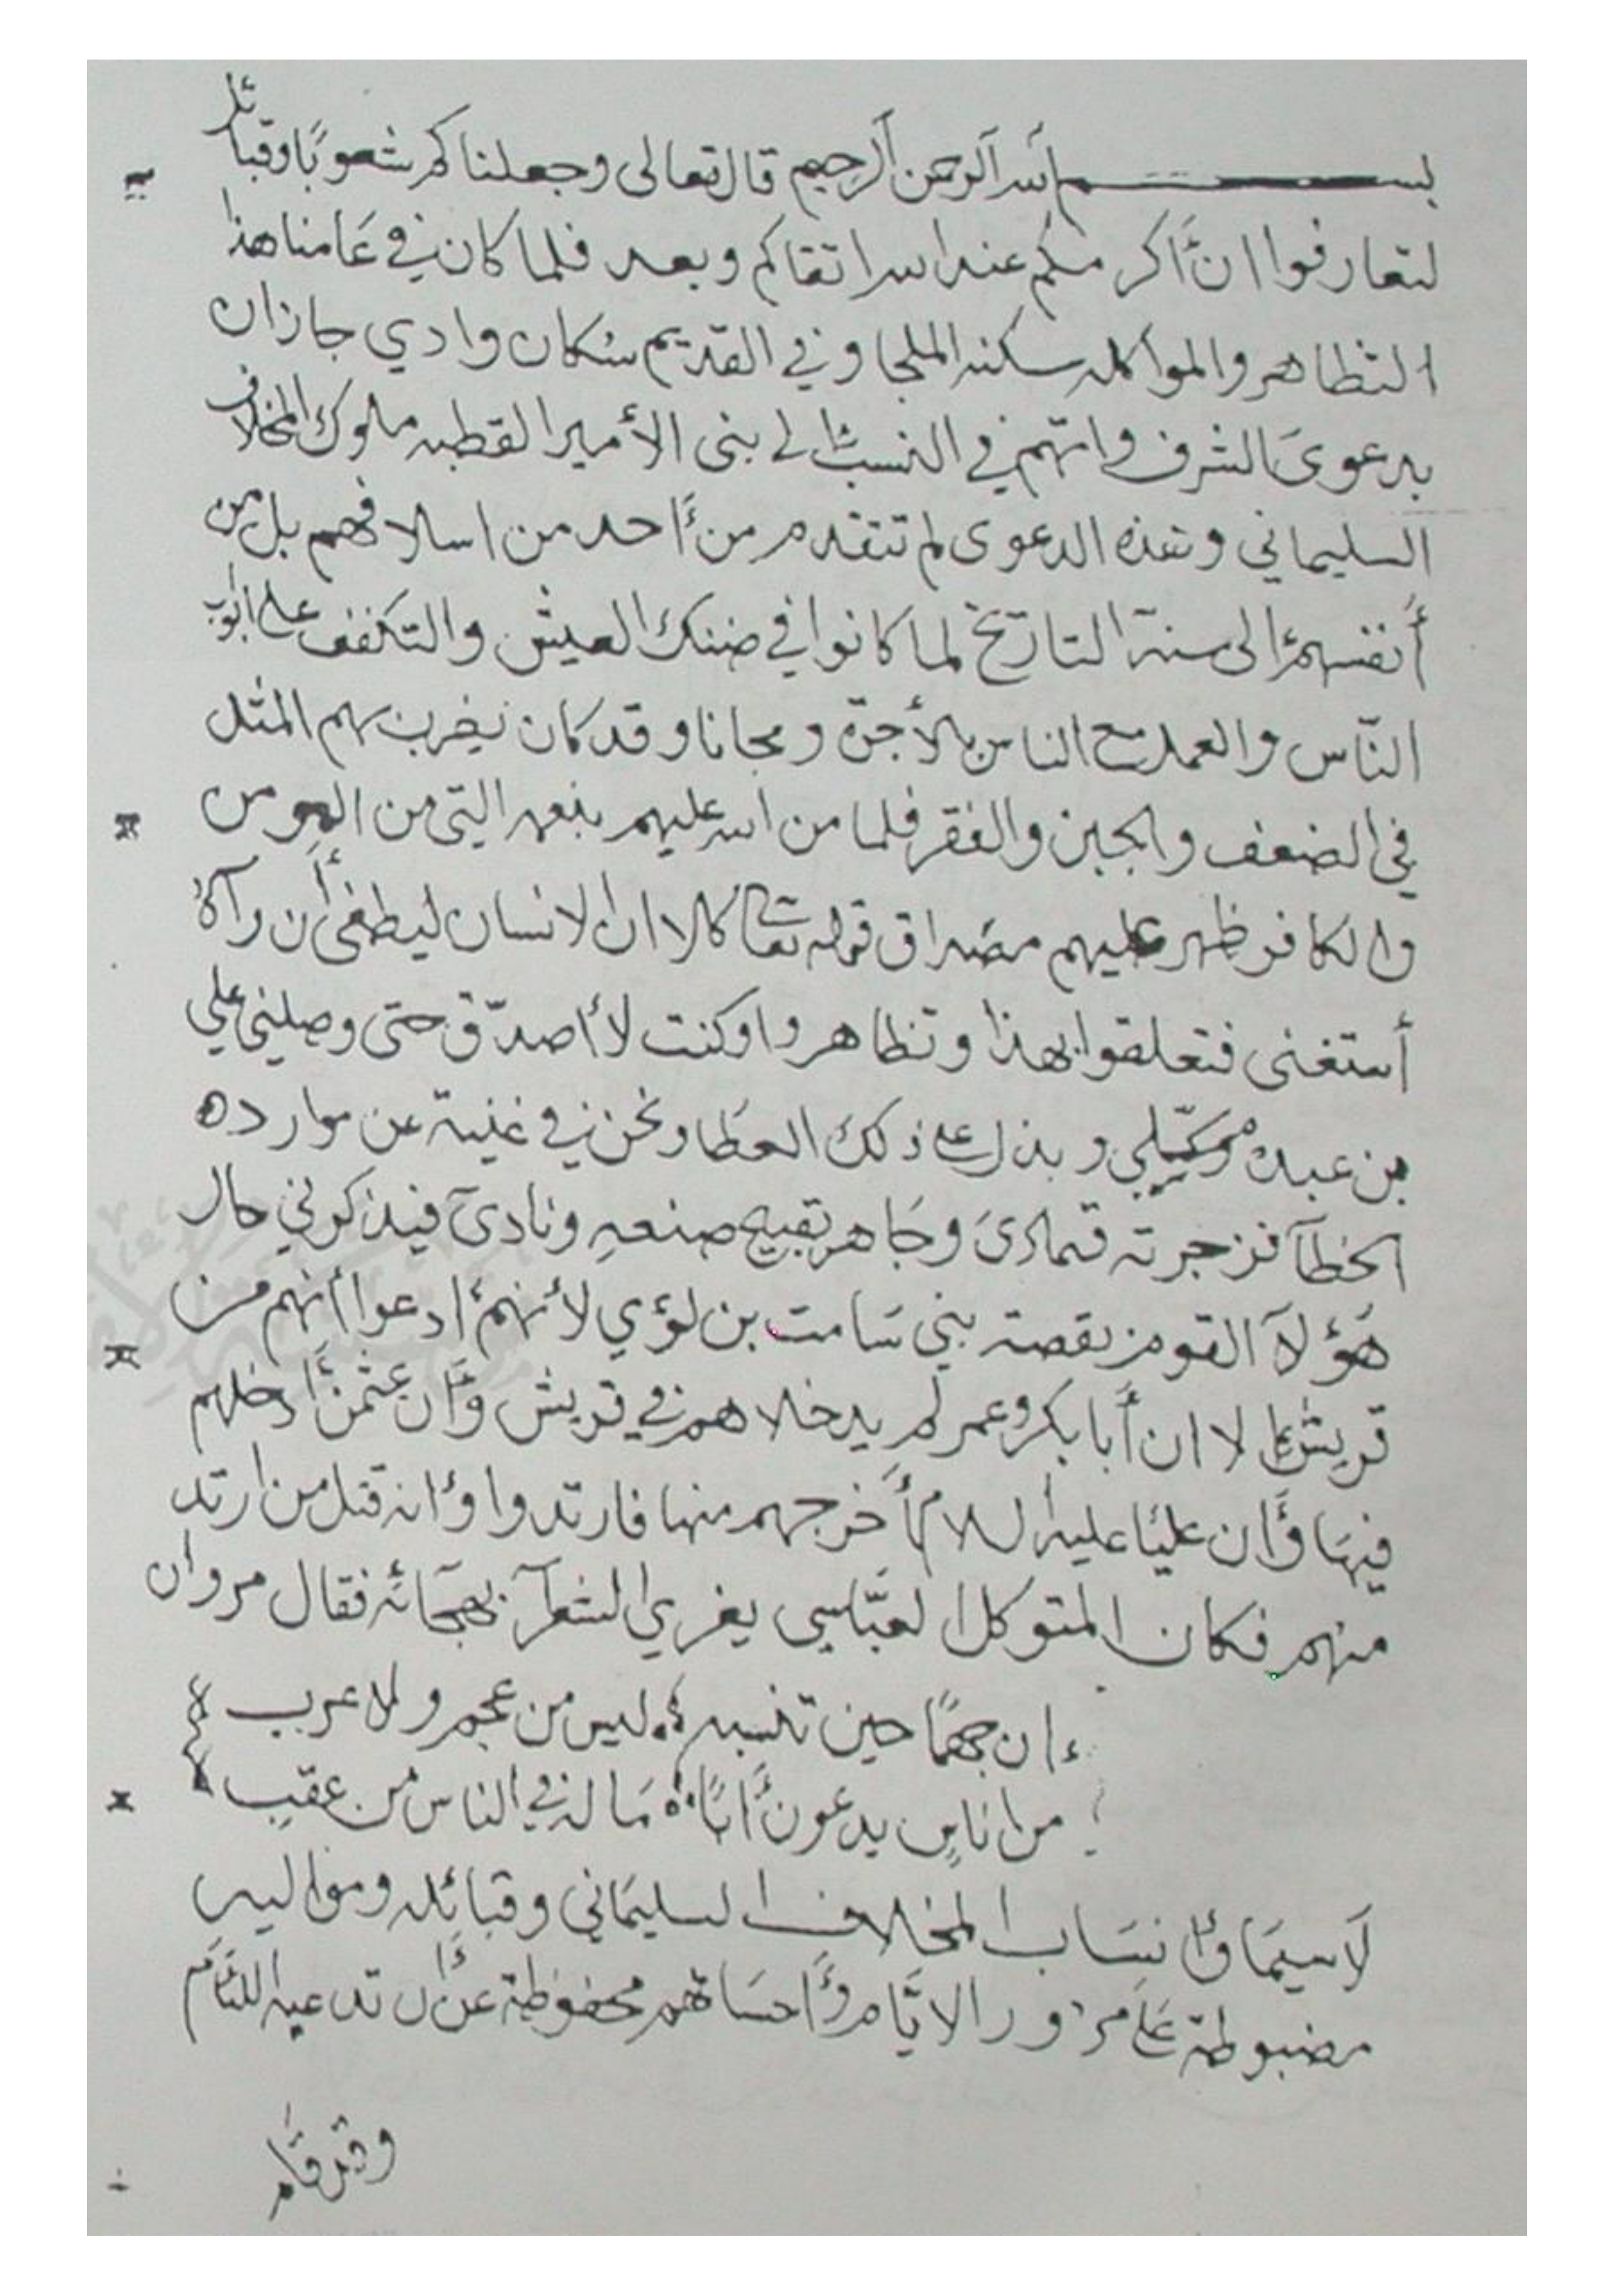 بسم الله الرحمن الرحيم قال تعالى وجعلناكم شعوبًا وقبائل
لتعارفوا ان أكرمكم عند الله اتقاكم وبعد فلما كان في عامنا هذا
التظاهر والمواكله سكنه الملحا وفي القديم سكان وادي جازان
بدعوى الشرف وانهم في النسب الى بنى الأمير القطبه ملوك المخلاف
السليماني وهذه الدعوى لم تتقدم من أحد من اسلافهم بل من
أنفسهم الى سنة التاريخ لما كانوا في ضنك العيش والتكفف على ابواب
النّاس والعمل مع الناس بالأجرة ومجانا وقد كان يضرب بهم المثل
في الضعف والجبن والفقر فلما من الله عليهم بنعمه التي من
والكافر ظهر عليهم مصداق قوله تعا كلا ان الانسان ليطغى أن رآه
أستغنى فتعلقوا بهذا وتظاهروا وكنت لا أصدّق حتى وصلني علي
بن عبده وبذل على ذلك العطا ونحن في غنية عن موارده
الخطآ فزجرته فتمادى وجاهر بقبيح صنعه ونادى فيذكرني حال
هؤلآ القوم بقصة بني سامت بن لؤي لأنهم ادعوا أنهم من
قريش إلا ان أبا بكر وعمر لم يدخلاهم في قريش وأن عثمن أدخلهم
فيها وأن عليًا عليه السلام أخرجهم منها فارتدوا وأنه قتل من ارتد
منهم فكان المتوكل العبّاسي يغري الشعرآ بهجائه فقال مروان
ان جهمًا حين تنسبه ليس من عجم ولا عرب
من اناسٍ يدعون أبًا ما له في الناس من عقب
لا سيما وأنساب المخلاف السليماني وقبائله ومواليه
مضبوطة على مرور الايّام وأحسابهم محفوظة عن ان تدعيه اللئام
وقد قام